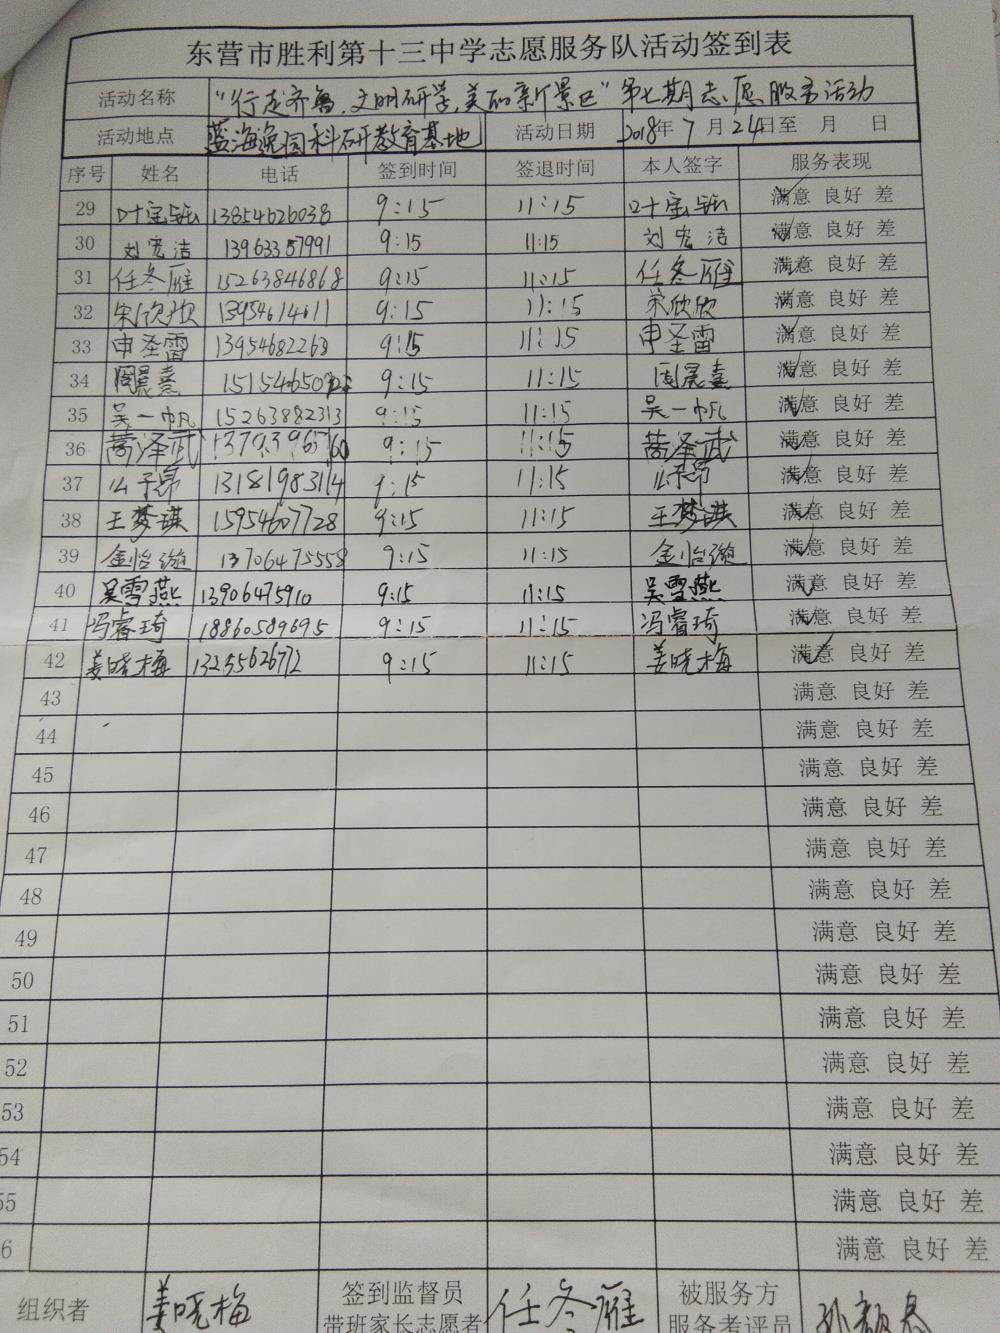 东营市胜利第十三中学志愿服务队活动签到表
活动名称 "行走齐鲁.文明研学,美丽新景区"第七期志愿服务活动
活动地点 蓝海逸园科研教育基地 活动日期 2018年7月24日至 月 日
序号 姓名 电话 签到时间 签退时间 本人签字 服务表现
29 叶宝 13854626038 9:15 11:15 叶宝 满意 良好 差
30 刘宏洁 13963357991 9:15 11:15 刘宏洁 满意 良好 差
31 任冬雁 15263846868 9:15 11:15 任冬雁 满意 良好 差
32 宋欣欣 13954614611 9:15 11:15 宋欣欣 满意 良好 差
33 申圣雷 13954682268 9:15 11:15 申圣雷 满意 良好 差
34 周晨熹 9:15 11:15 周晨熹 满意 良好 差
35 吴一帆 15263882313 9:15 11:15 吴一帆 满意 良好 差
36 9:15 11:15 满意 良好 差
37 么子昂 13181983114 9:15 11:15 么子昂 满意 良好 差
38 王梦琪 15954607728 9:15 11:15 王梦琪 满意 良好 差
39 金怡漩 13706475558 9:15 11:15 金怡漩 满意 良好 差
40 吴雪燕 13906475910 9:15 11:15 吴雪燕 满意 良好 差
41 冯睿琦 18860589695 9:15 11:15 冯睿琦 满意 良好 差
42 姜晓梅 13255626712 9:15 11:15 姜晓梅 满意 良好 差
43 满意 良好 差
44 满意 良好 差
45 满意 良好 差
46 满意 良好 差
47 满意 良好 差
48 满意 良好 差
49 满意 良好 差
50 满意 良好 差
51 满意 良好 差
52 满意 良好 差
53 满意 良好 差
54 满意 良好 差
55 满意 良好 差
6 满意 良好 差
组织者 姜晓梅 签到监督员 任冬雁 被服务方
带班家长志愿者 服务考评员